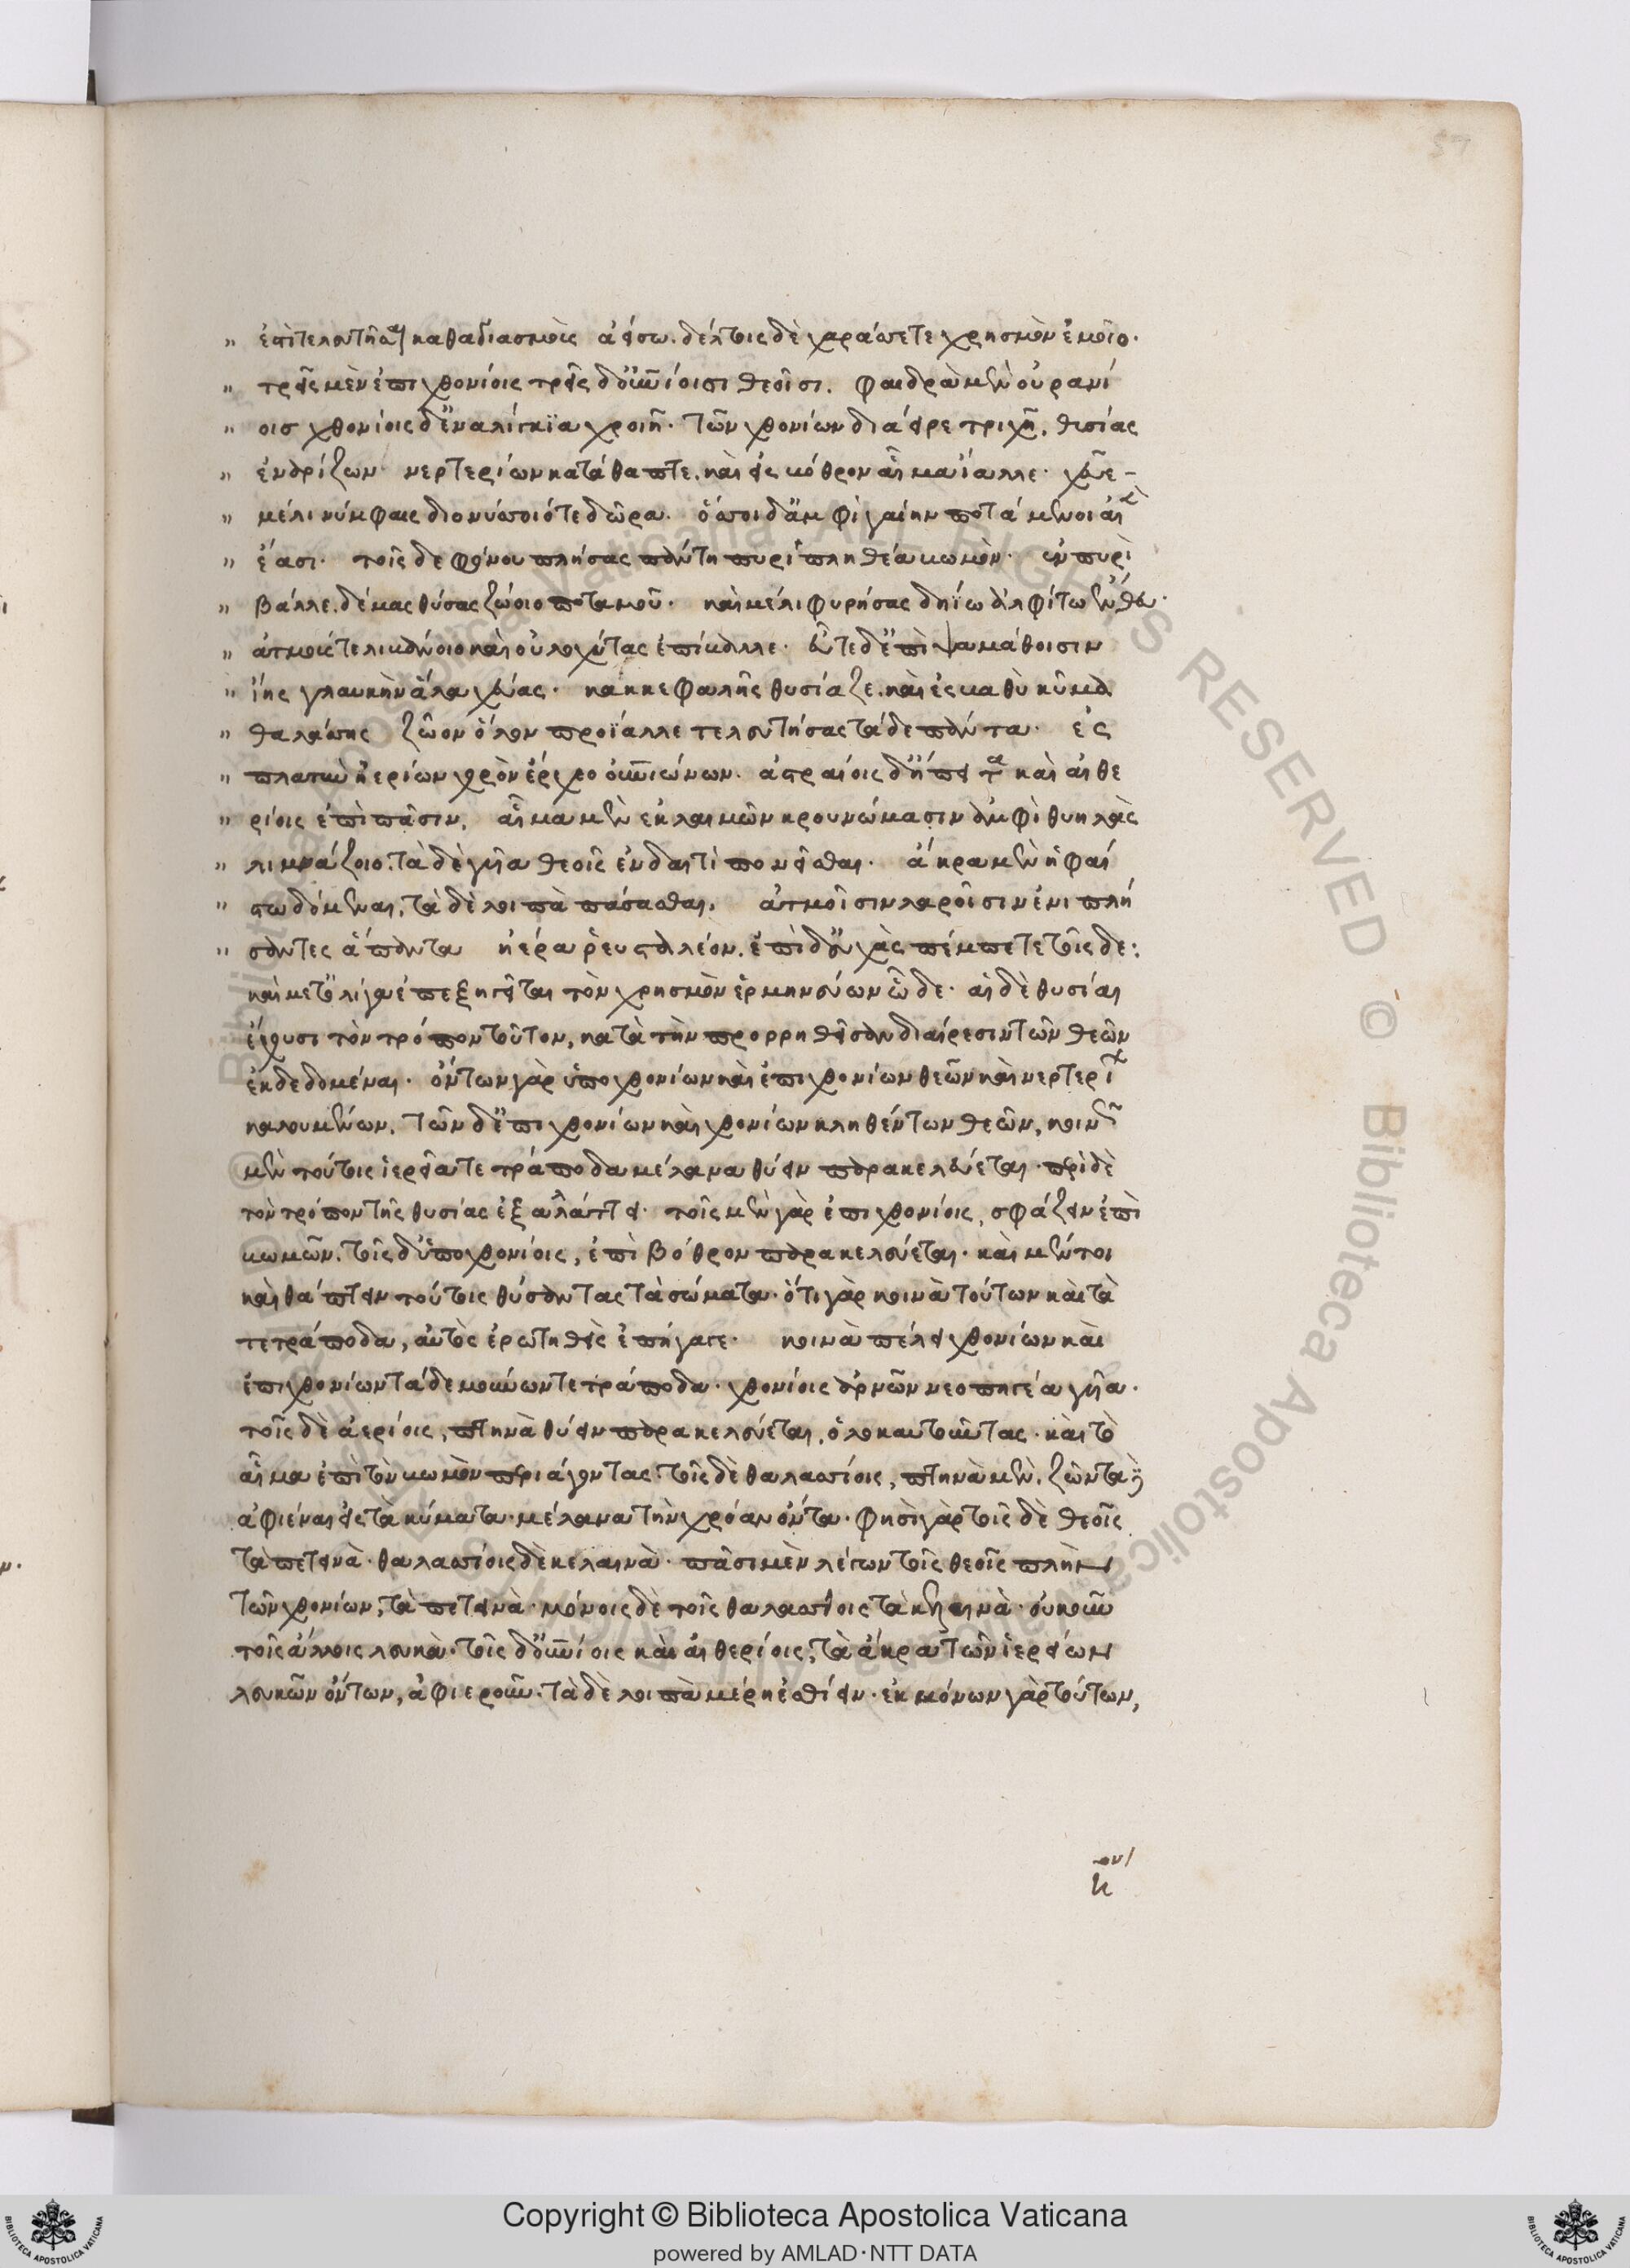 " ἐστὶ τελευτῆσαι καθαγιασμοῖς ἀείσω. δέλτοις δὲ χαράσσετε χρησμὸν ἐμοῖο·
" τρεῖς μὲν ἐπιχθονίοις τρεῖς δ' οὐρανίοισι θεοῖσι. φαιδρὰ μὲν οὐρανί
" οισ χθονίοις δ' ἐναλίγκϊα χροιῆ· τῶν χθονίων διάειρε τριχῆ, θυσίας
" ἐνδρίζων· νερτερίων κατάθαπτε, καὶ εἰς βόθρον αἷμα ἴαλλε· χεῦε -
" μέλι νύμφαις διονύσοιό τε δῶρα. ὅσσοι δ' ἀμφὶ γαίην ποτώμενοι αἰὲν
" ἔασι· τοῖς δε φόνου πλήσας πάντη πυριπληθέα βωμὸν· ἐν πυρὶ
" βάλλε. δέμας θύσας ζώοιο ποτανοῦ· καὶ μέλι φυρήσας δηίω ἀλφίτω ἔνθεν·
" ἀτμούς τε λιβάνοιο καὶ οὐλοχύτας ἐπίβαλλε· εὖτε δ' ἐπὶ ψαμάθοισιν
" ἴης γλαυκὴν ἅλα χεύας· κακκεφαλῆς θυσίαζε. καὶ ἐς βαθὺ κῦμα
" θαλάσσης ζῶον ὅλον προϊάλλε τελευτήσας τάδε πάντα· ἐς
" πλατὺν ἠερίων χορὸν ἔρχεο οὐρανιώνων. ἀστραίοις δ' ἤπειτα καὶ αἰθε
" ρίοις ἐπὶ πᾶσιν, αἷμα μὲν ἐκ λαιμῶν κρουνώμασιν ἀμφὶ θυηλὰς
" λιμνάζοιο. τὰ δὲ γυῖα θεοῖς ἐν δαιτὶ πονεῖσθαι. ἄκρα μὲν ἡφαί
" στω δόμεναι, τὰ δὲ λοιπὰ πάσασθαι, ἀτμοῖσιν λαροῖσιν ἐνιπλή
" σαντες ἅπαντα ἠέρα ῥευσταλέον. ἐπὶ δ' εὐχὰς πέμπετε τοῖς δε:
καὶ μετ' ὀλίγον ἐπεξηγεῖται τὸν χρησμὸν ἑρμηνεύων ὧδε· αἱ δὲ θυσίαι
ἔχουσι τὸν τρόπον τοῦτον, κατὰ τὴν προρρηθεῖσαν διαίρεσιν τῶν θεῶν
ἐκδεδομέναι· ὄντων γὰρ ὑποχθονίων καὶ ἐπιχθονίων θεῶν καὶ νερτερίων
καλουμένων. τῶν δ' ἐπιχθονίων καὶ χθονίων κληθέντων θεῶν, κοινῶς
μὲν τούτοις ἱερεῖα τετράποδα μέλανα θύειν παρακελεύεται· περὶ δὲ
τὸν τρόπον τῆς θυσίας ἐξαλλάττει· τοῖς μὲν γὰρ ἐπιχθονίοις, σφάζειν ἐπὶ
βωμῶν. τοῖς δ' ὑποχθονίοις, ἐπὶ βόθρον παρακελεύεται· καὶ μέντοι
καὶ θάπτειν τούτοις θύσαντας τὰ σώματα· ὅτι γὰρ κοινὰ τούτων καὶ τὰ
τετράποδα, αὐτὸς ἐρωτηθεὶς ἐπήγαγε· κοινὰ πέλει χθονίων καὶ
ἐπιχθονίων τάδε μούνων τετράποδα· χθονίοις ἀρνῶν νεοπηγέα γυῖα·
τοῖς δὲ ἀερίοις, πτηνὰ θύειν παρακελεύεται, ὁλοκαυτοῦντας· καὶ τὸ
αἷμα ἐπὶ τὸν βωμὸν περιάγοντας. τοῖς δὲ θαλασσίοις, πτηνὰ μὲν, ζῶντα δὲ
ἀφιέναι εἰς τὰ κύματα· μέλανα τὴν χρόαν ὄντα· φησὶ γὰρ τοῖς δὲ θεοῖς
τὰ πετεινὰ· θαλασσίοις δὲ κελαινὰ· πᾶσι μὲν λέγων τοῖς θεοῖς πλὴν
τῶν χθονίων, τὰ πετεινὰ· μόνοις δὲ τοῖς θαλασσίοις τὰ κελαινὰ· οὐκοῦν
τοῖς ἄλλοις λευκὰ· τοῖς δ' οὐρανίοις καὶ αἰθερίοις, τὰ ἄκρα τῶν ἱερείων
λευκῶν ὄντων, ἀφιεροῦν· τὰ δὲ λοιπὰ μέρη ἐσθίειν· ἐκ μόνων γὰρ τούτων,
κ